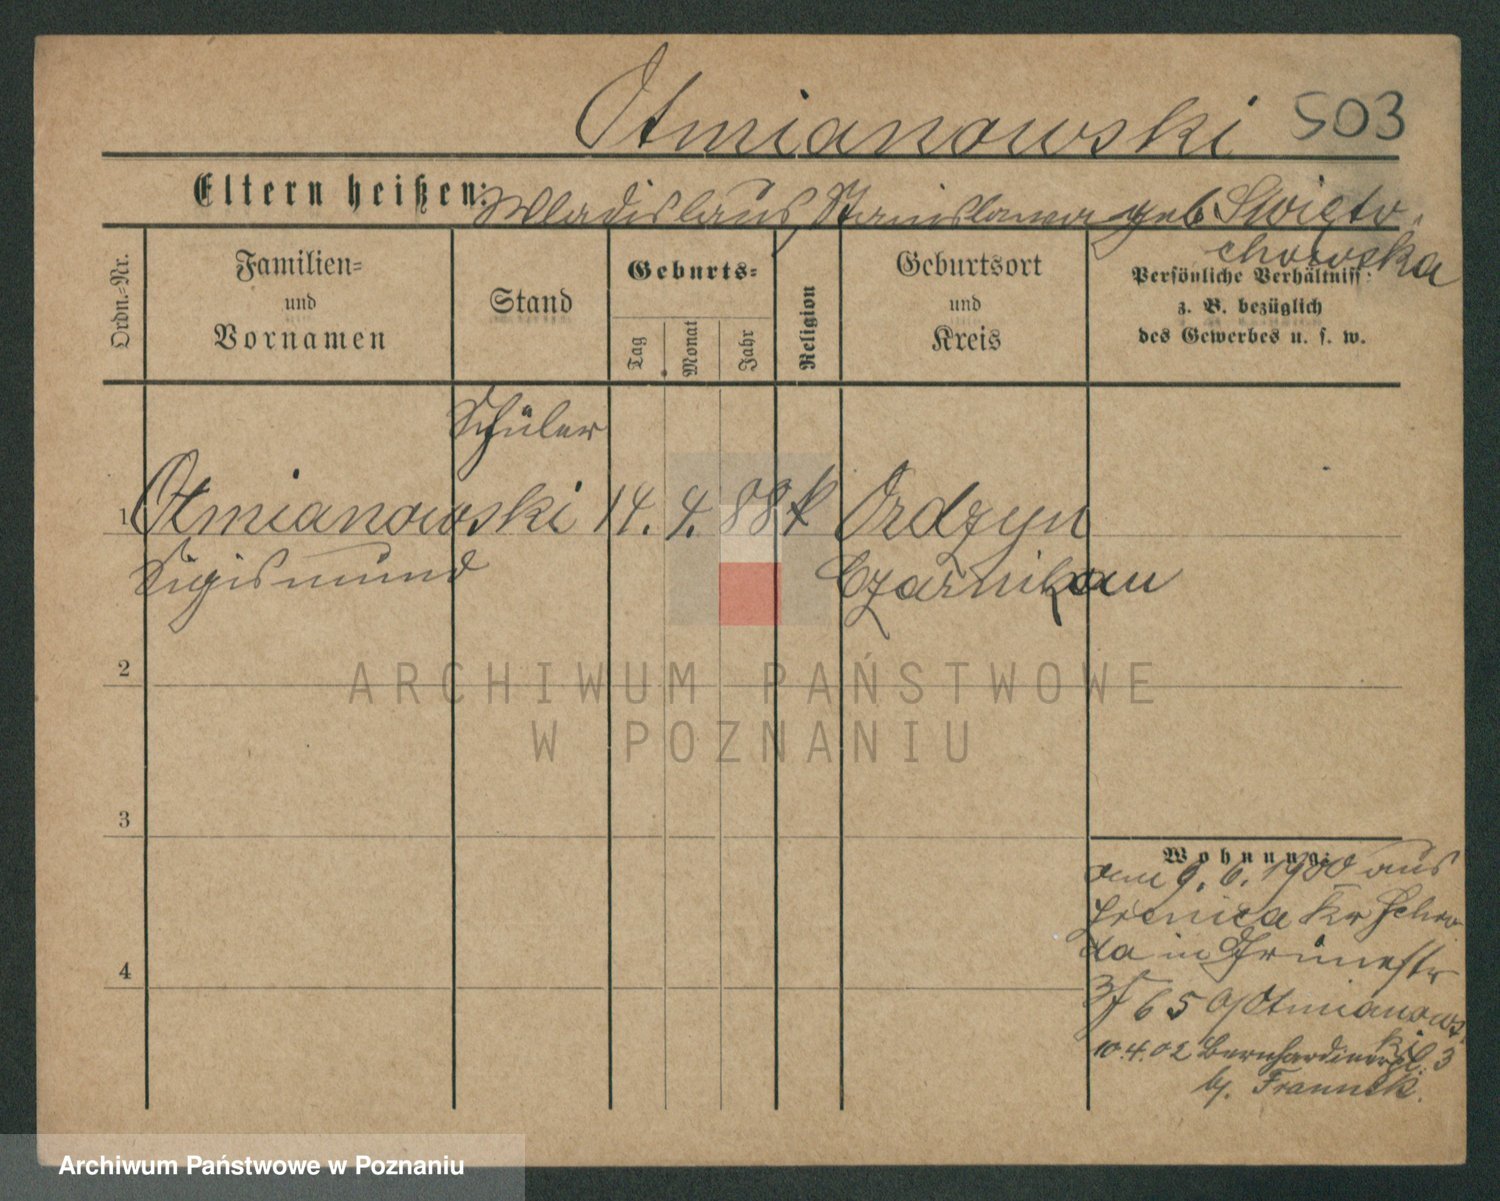 Otmianowski 503
Eltern heißen: Wladislaus, Stanislawa geb Swięto-
chowska
Ordn.-Nr.
Familien-
und
Vornamen
Stand
Geburts-
Tag
Monat
Jahr
Religion
Geburtsort
und
Kreis
Persönliche Verhältniss
z. B. bezüglich
des Gewerbes u. s. w.
Schüler
1 Otmianowski 14. 4. 88 k Ordzyn
Sigismund Czarnikau
2
3
4
Wohnung:
am 9. 6. 1900 aus
Kr Schro-
da in Grünestr
65 Otmianows
ki
10.4.02 Bernhardinerpl. 3
b.
ARCHIWUM PAŃSTWOWE
W POZNANIU
Archiwum Państwowe w Poznaniu